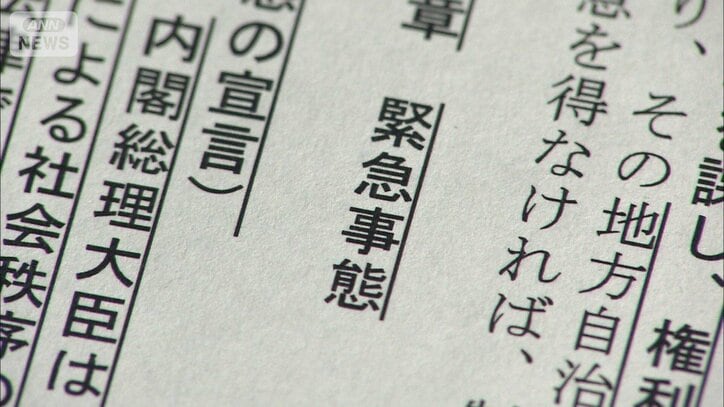 ANN
NEWS
課し、 権利
り、その地方自治
を得なければ、
章 緊急事態
の宣言）
内閣総理大臣は
による社会秩序の